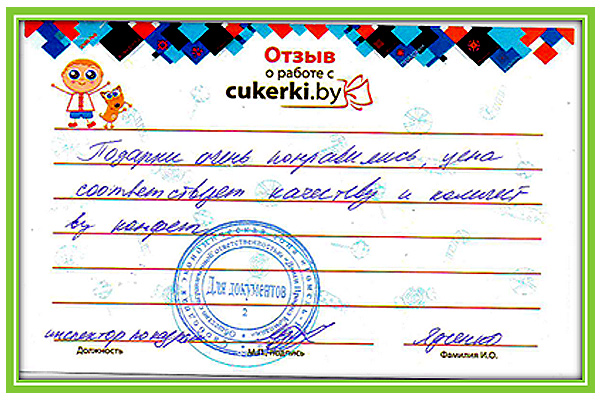 Отзыв
о работе с
cukerki.by
Подарки очень понравились, цена
соответствует качеству и количест
ву конфет
Для документов
2
инспектор по кадрам
Ядченко
Должность
М.П., подпись
Фамилия И.О.